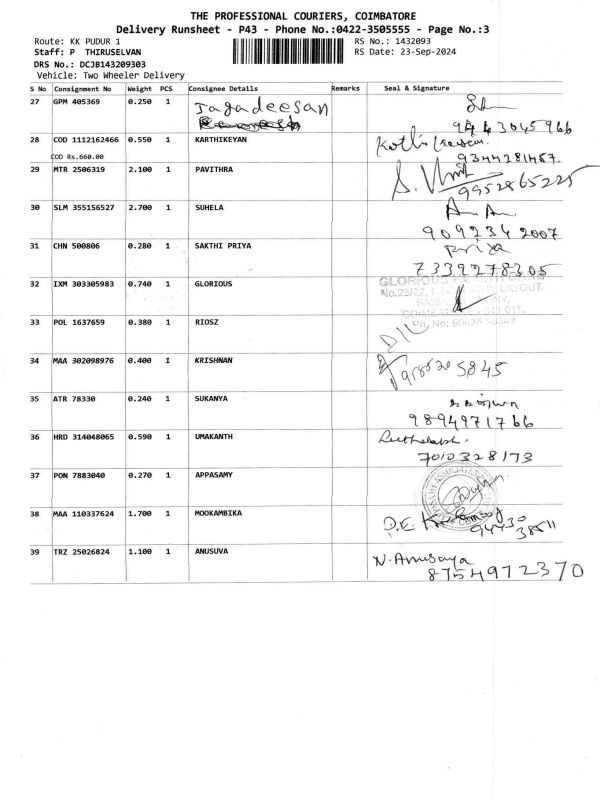 THE PROFESSIONAL COURIERS, COIMBATORE
Delivery Runsheet - P43 - Phone No.:0422-3505555 - Page No.:3
Route: KK PUDUR 1 RS No.: 1432093
Staff: P THIRUSELVAN RS Date: 23-Sep-2024
DRS No.: DCJB143209303
Vehicle: Two Wheeler Delivery
S No Consignment No Weight PCS Consignee Details Remarks Seal & Signature
27 GPM 405369 0.250 1 Jagadeesan
9443045966
28 COD 1112162466 0.550 1 KARTHIKEYAN
COD Rs.660.00 9344281457.
29 MTR 2506319 2.100 1 PAVITHRA
9952865225
30 SLM 355156527 2.700 1 SUHELA
9092342007
31 CHN 500806 0.280 1 SAKTHI PRIYA Priya
7339278305
32 IXM 303305983 0.740 1 GLORIOUS GLORIOUS
33 POL 1637659 0.380 1 RIOSZ
34 MAA 302098976 0.400 1 KRISHNAN
35 ATR 78330 0.240 1 SUKANYA
9894971766
36 HRD 314048065 0.590 1 UMAKANTH
7010328173
37 PON 7883040 0.270 1 APPASAMY
38 MAA 110337624 1.700 1 MOOKAMBIKA
94430
38511
39 TRZ 25026824 1.100 1 ANUSUVA N. Anusaya
8754972370